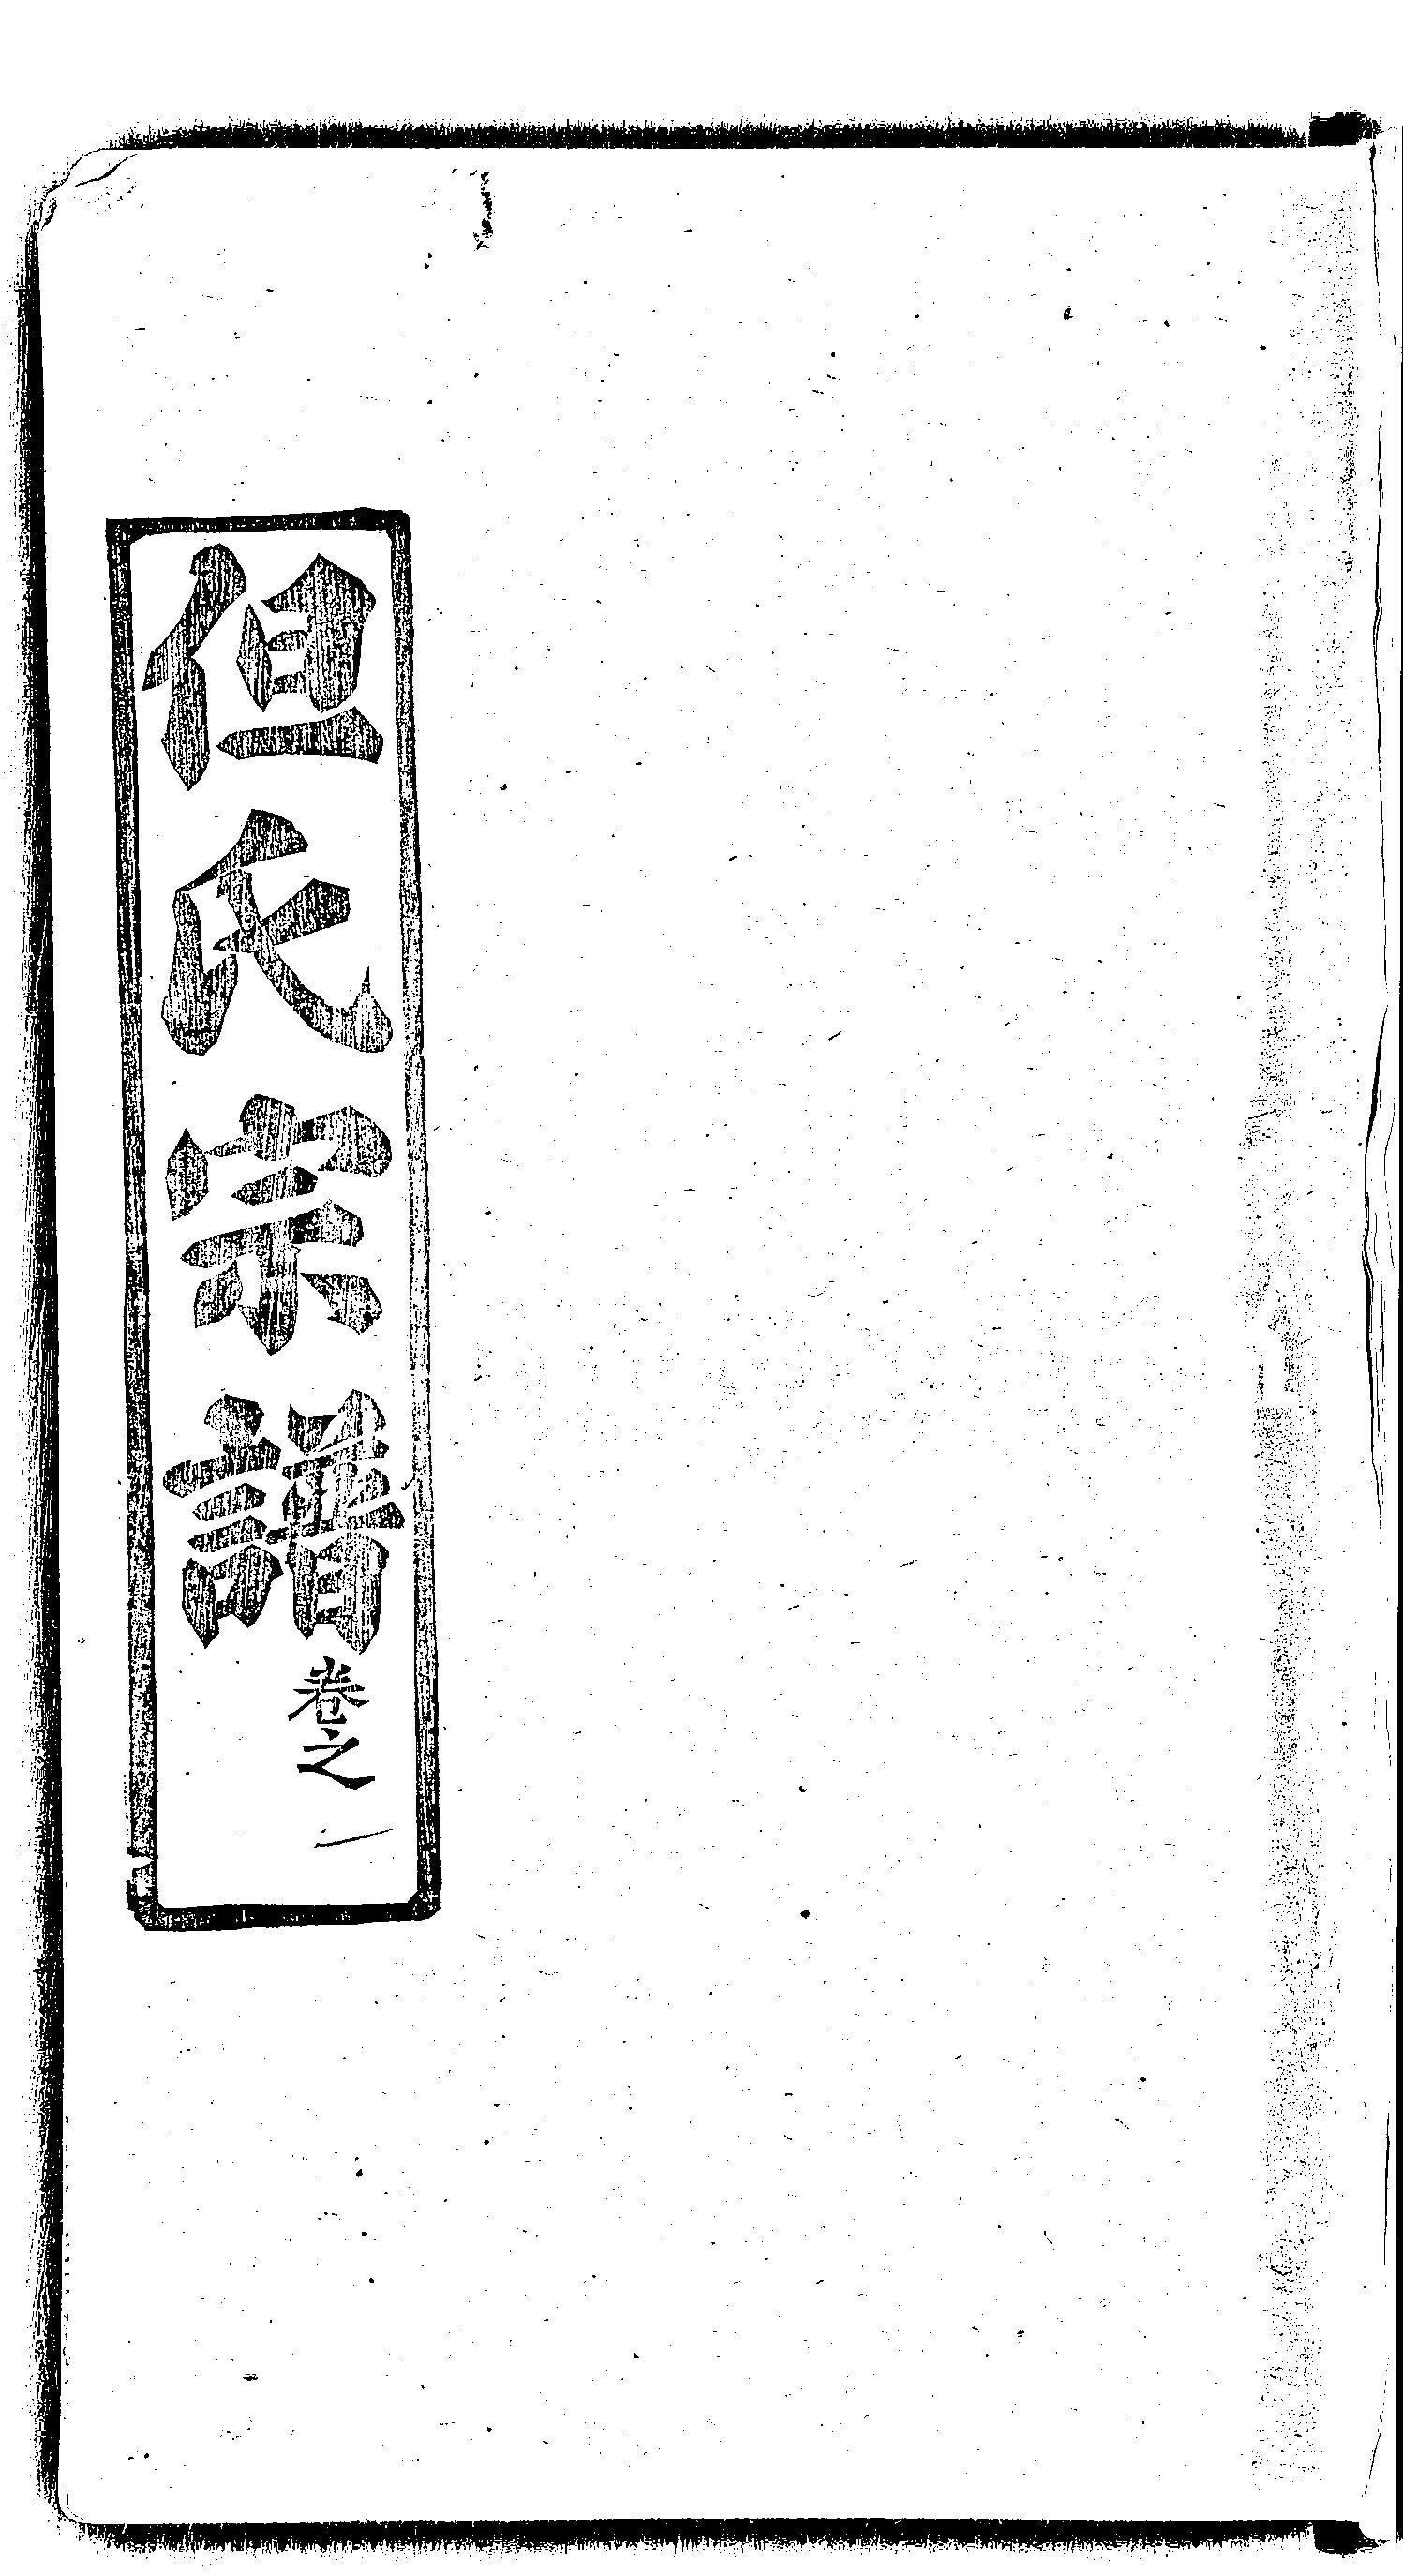 但氏宗譜
卷之一